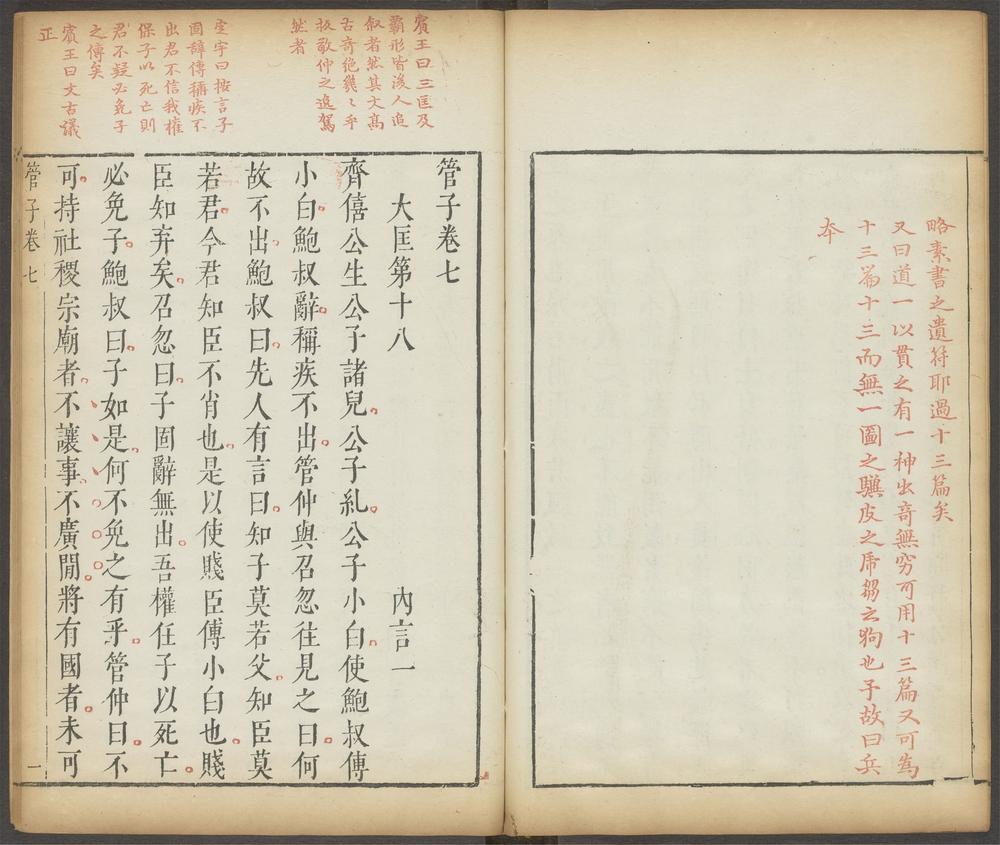 略素書之遺符耶過十三篇矣
又曰道一以貫之有一神出竒無窮可用十三篇又可為
十三篇十三而無一圖之驥皮之虎芻之狗也予故曰兵
夲
賔王曰三匡及
霸形皆後人追
叙者然其文髙
古竒絶幾〻乎
扳敬仲之逸駕
然者
定宇曰按言子
固辭傅稱疾不
出君不信我權
保子以死亡則
君不疑必免子
之傅矣
賔王曰文古議
正
管子卷七
大匡第十八 內言一
齊僖公生公子諸兒公子糺公子小白使鮑叔傅
小白鮑叔辭稱疾不出管仲與召忽往見之曰何
故不出鮑叔曰先人有言曰知子莫若父知臣莫
若君今君知臣不肖也是以使賤臣傅小白也賤
臣知弃矣召忽曰子固辭無出吾權任子以死亡
必免子鮑叔曰子如是何不免之有乎管仲曰不
可持社稷宗廟者不讓事不廣閒將有國者未可
管子卷七 一